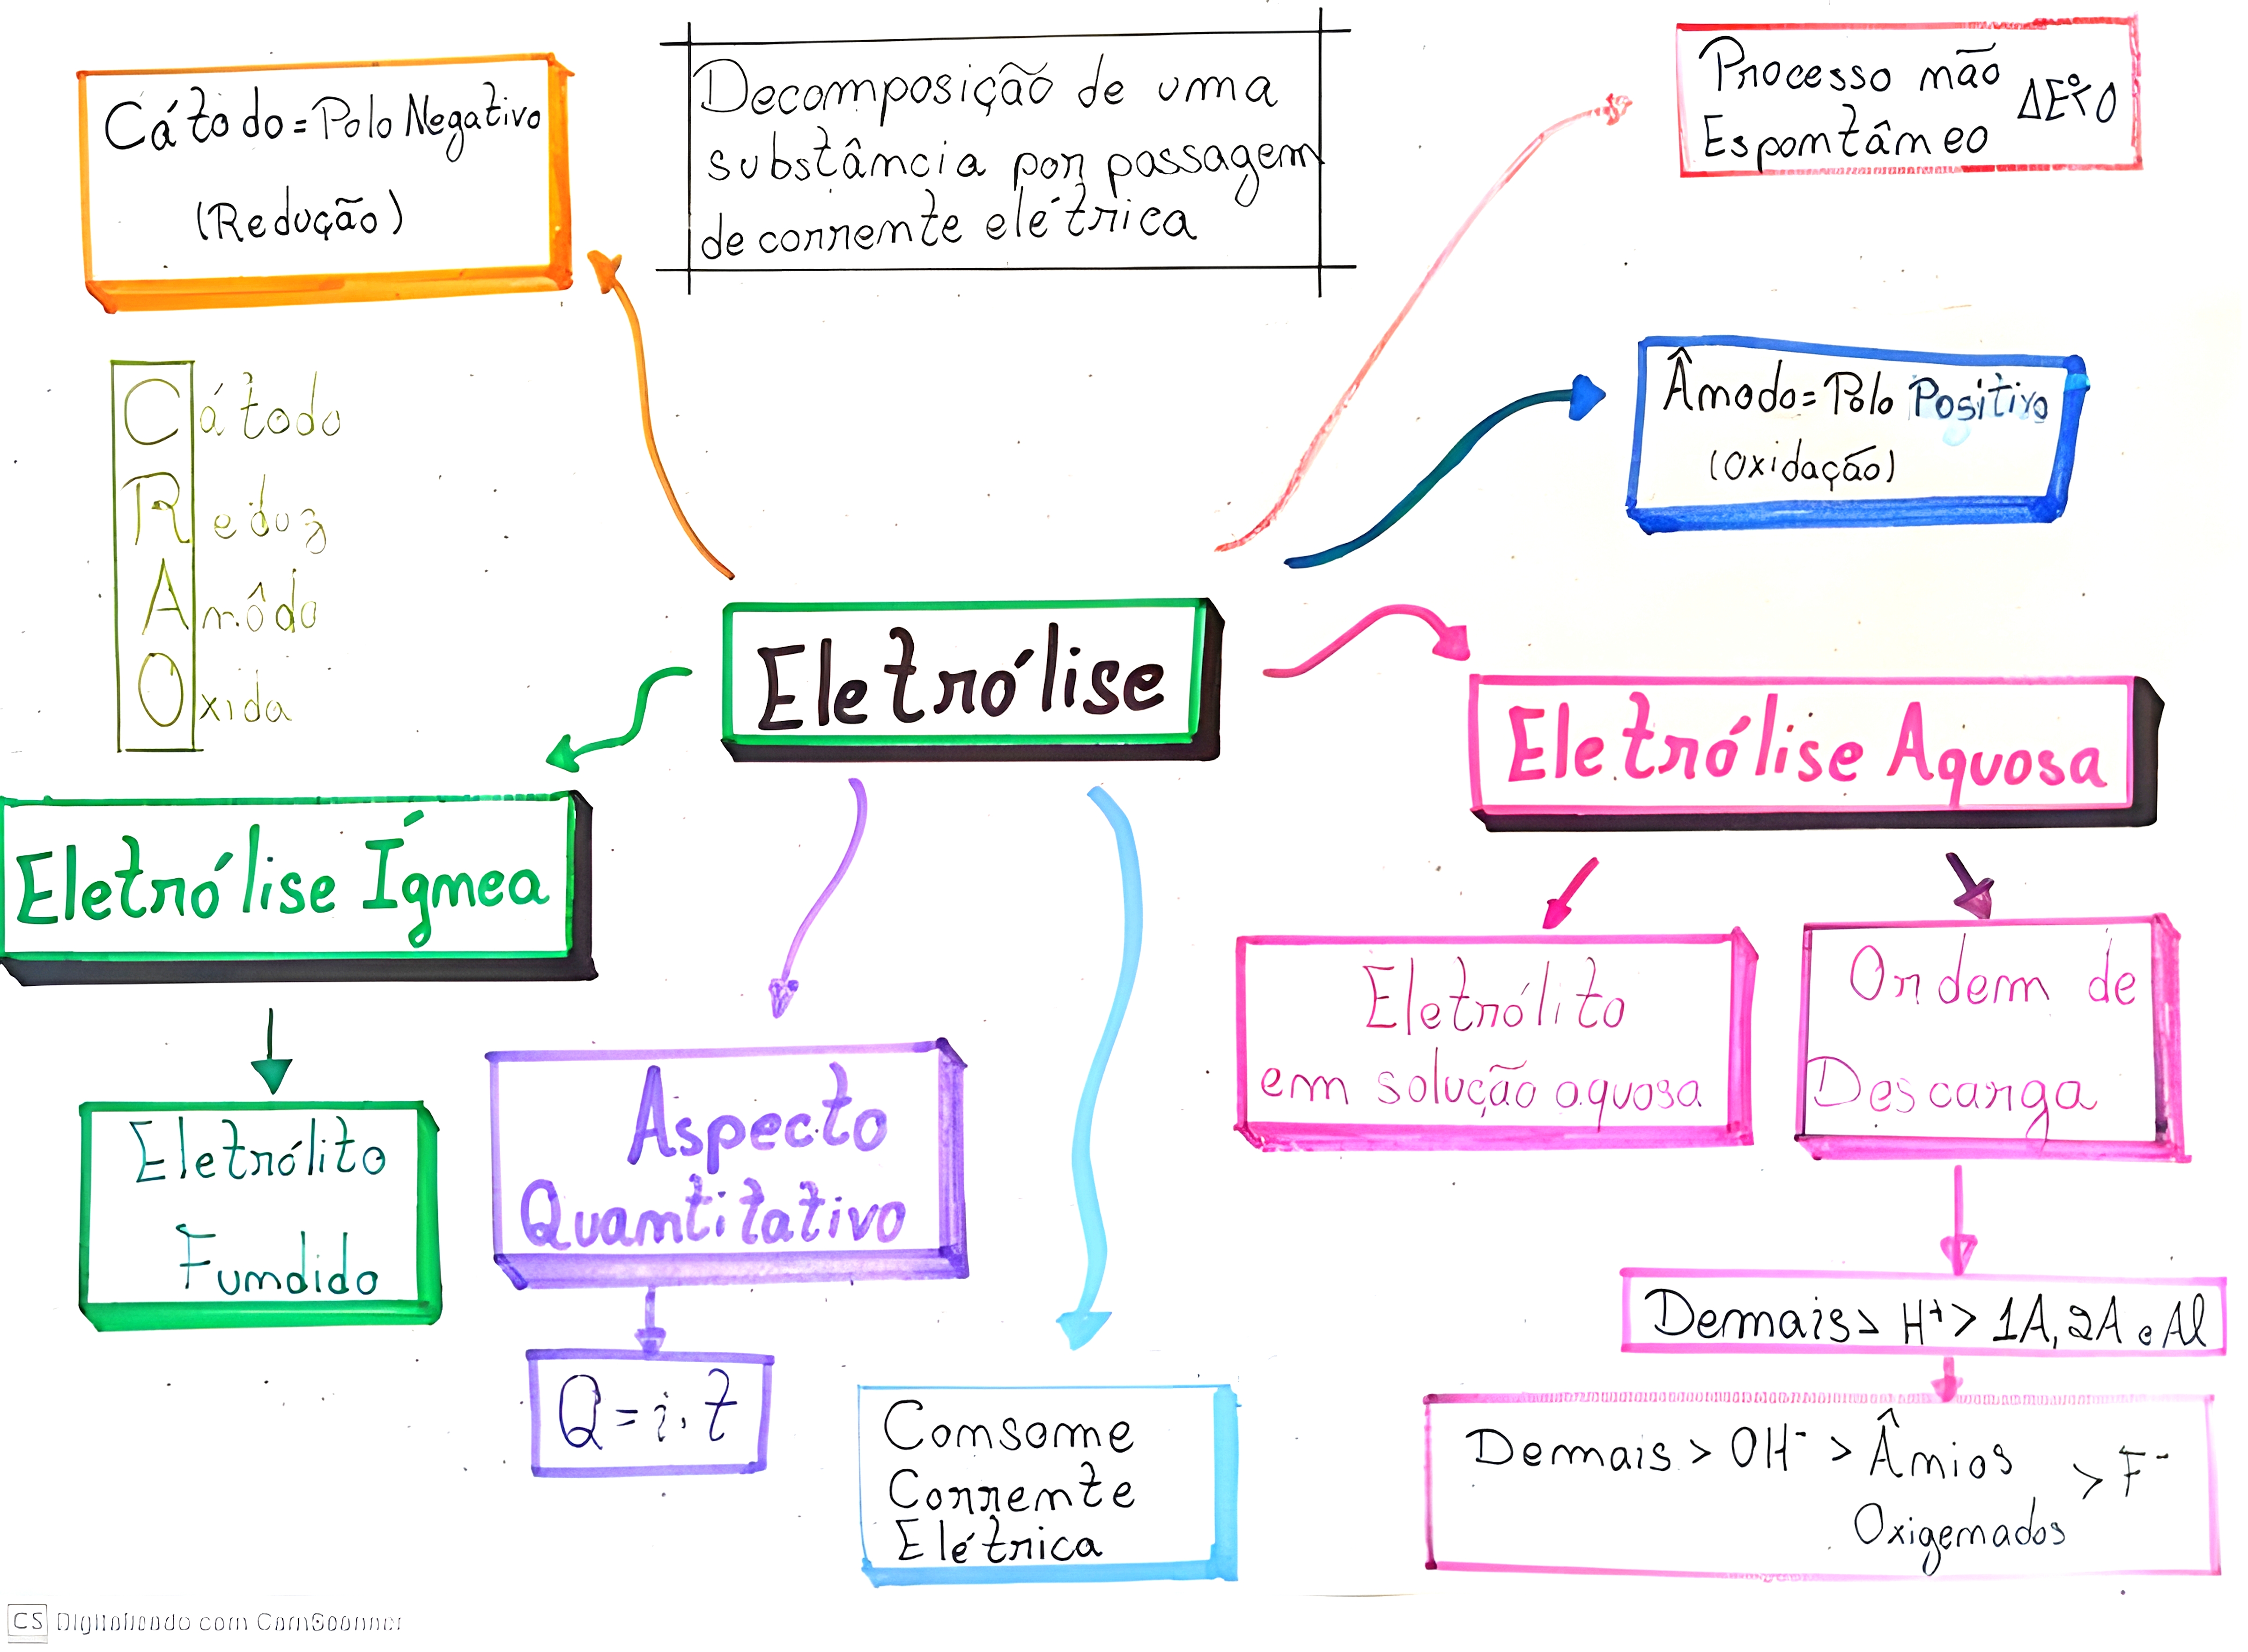 Cátodo = Polo Negativo
(Redução)
Decomposição de uma
substância por passagem
de corrente elétrica
Processo não
Espontâneo ΔE°<0
Ânodo = Polo Positivo
(Oxidação)
Cátodo
Reduz
Anôdo
Oxida
Eletrólise
Eletrólise Ígnea
Eletrólito
Fundido
Aspecto
Quantitativo
Q = i . t
Consome
Corrente
Elétrica
Eletrólise Aquosa
Eletrólito
em solução aquosa
Ordem de
Descarga
Demais > H⁺ > 1A, 2A e Al
Demais > OH⁻ > Ânios
Oxigenados > F⁻
CS Digitalizado com CamScanner